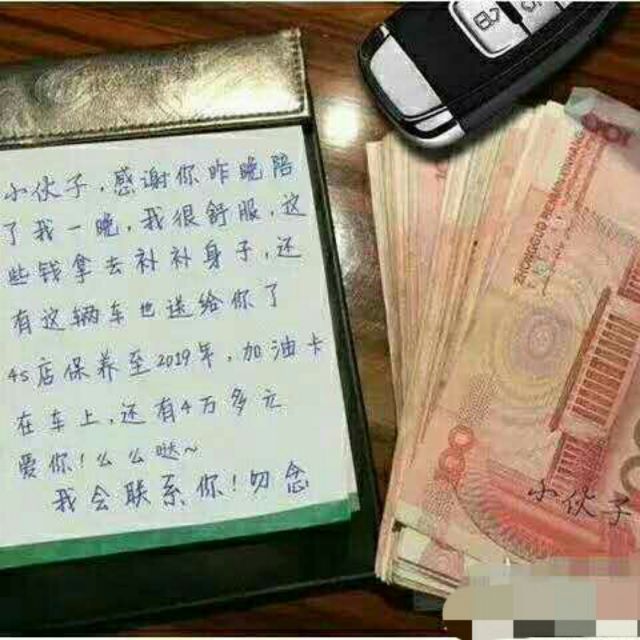 小伙子，感谢你昨晚陪
了我一晚，我很舒服，这
些钱拿去补补身子，还
有这辆车也送给你了
4S店保养至2019年，加油卡
在车上，还有4万多元
爱你！么么哒～
我会联系你！勿念
ZHONGGUO RENMIN YINHANG
100
100
小伙子